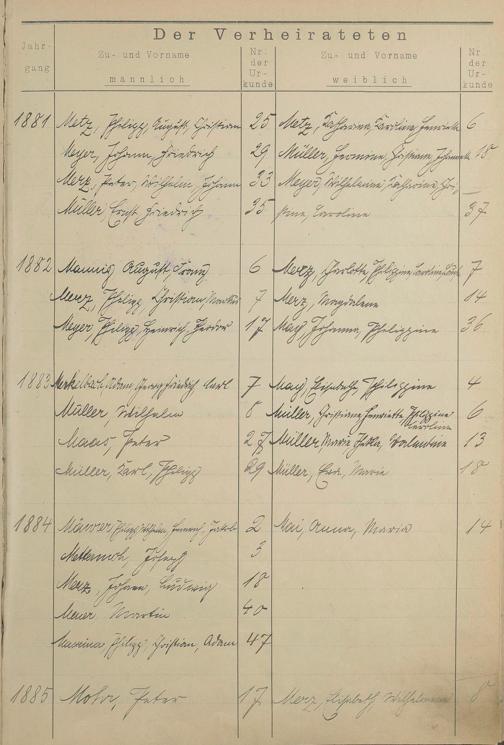 Der Verheirateten
Jahr-
gang
Zu- und Vorname
männlich
Nr.
der
Ur-
kunde
Zu- und Vorname
weiblich
Nr.
der
Ur-
kunde
1881 Metz, Philipp, August, Christian 25 Metz, Katharina, Karoline, Henriette 6
Meyer, Johann Friedrich 29 Müller, Hermine, Christiane, 18
Merz, Peter, Wilhelm, Johann 33 Meyer, Wilhelmine, Katharina
Müller Ernst Friedrich 35 Karoline 37
1882 August, Franz 6 Merz, Charlotte, Philippine 7
Merz, Philipp, Christian, 7 Merz, Magdalene 14
Meyer, Philipp, Heinrich, 17 May, Johanna, Philippine 36
1883 Merkelbach, Adam, Georg Friedrich Carl 7 May, Elisabeth, Philippine 4
Müller, Wilhelm 8 Müller, Christiane Henriette, Philippine Caroline 6
Maas, Peter 27 Müller, Maria, Valentine 13
Müller, Karl, Philipp 29 Müller, Eva, Maria 18
1884 Philipp, Wilhelm, Heinrich, Jakob 2 Mai, Anna, Maria 14
Metternich, Joseph 3
Merz, Johann, Ludwig 18
Martin 40
Philipp, Christian, Adam 47
1885 Mohr, Peter 17 Merz, Elisabeth Wilhelmine 8